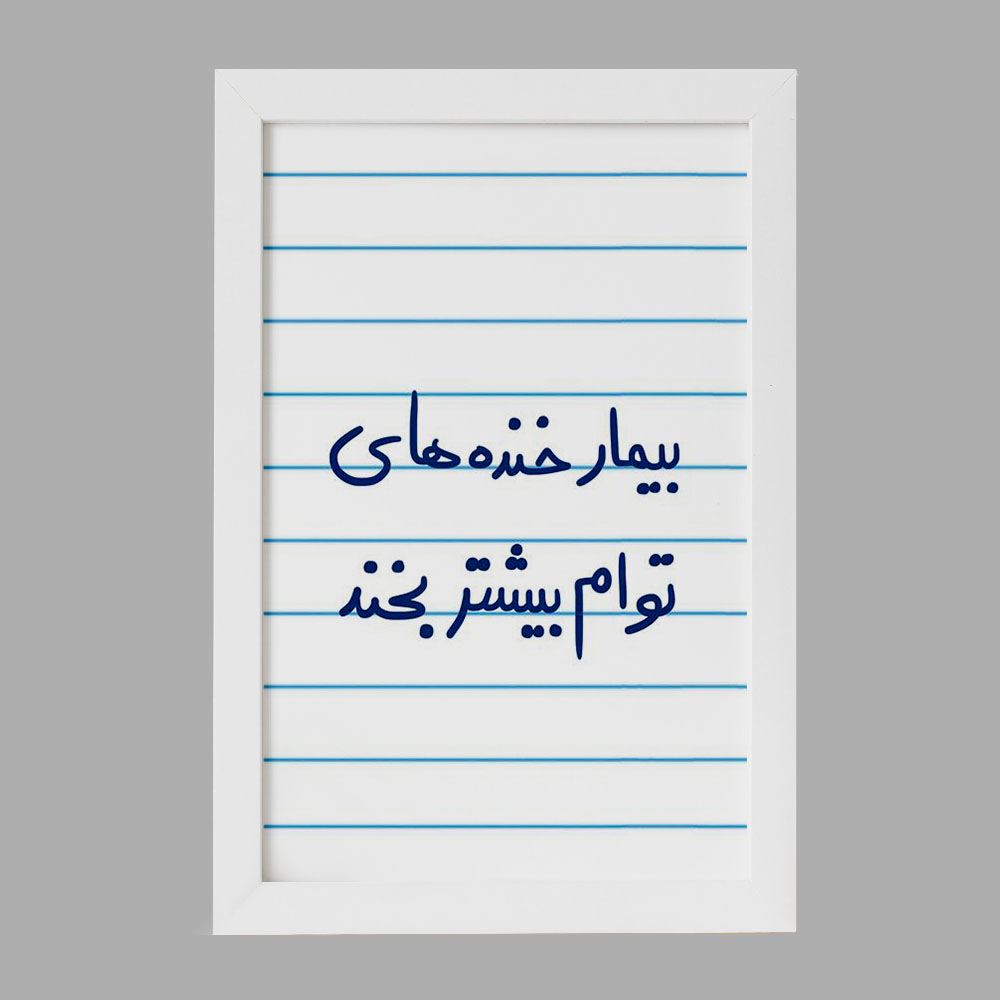 بیمار خنده های
تو ام بیشتر بخند